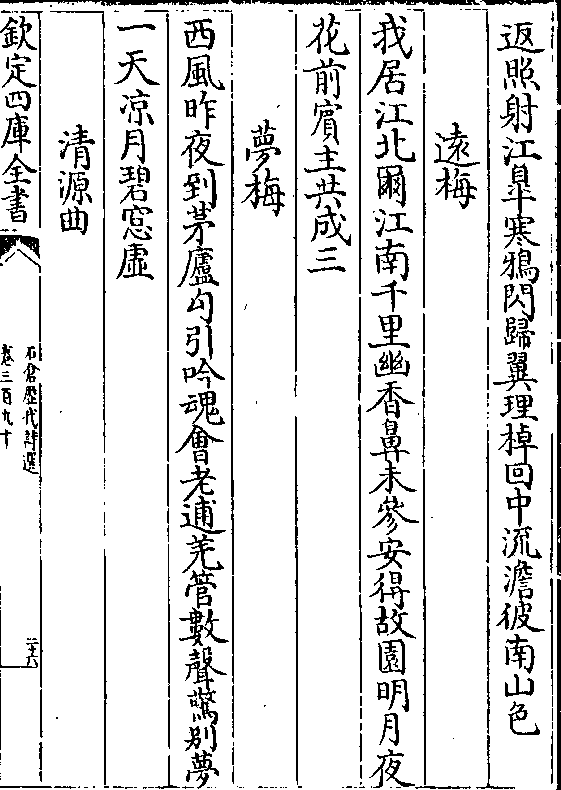 返照射江臯寒鴉閃歸翼理棹回中流澹彼南山色
遠梅
我居江北爾江南千里幽香鼻未參安得故園明月夜
花前賓主共成三
夢梅
西風昨夜到茅廬勾引吟魂會老逋羌管數聲驚別夢
一天凉月碧窓虛
清源曲
欽定四庫全書
石倉歷代詩選
卷三百九十
二十六